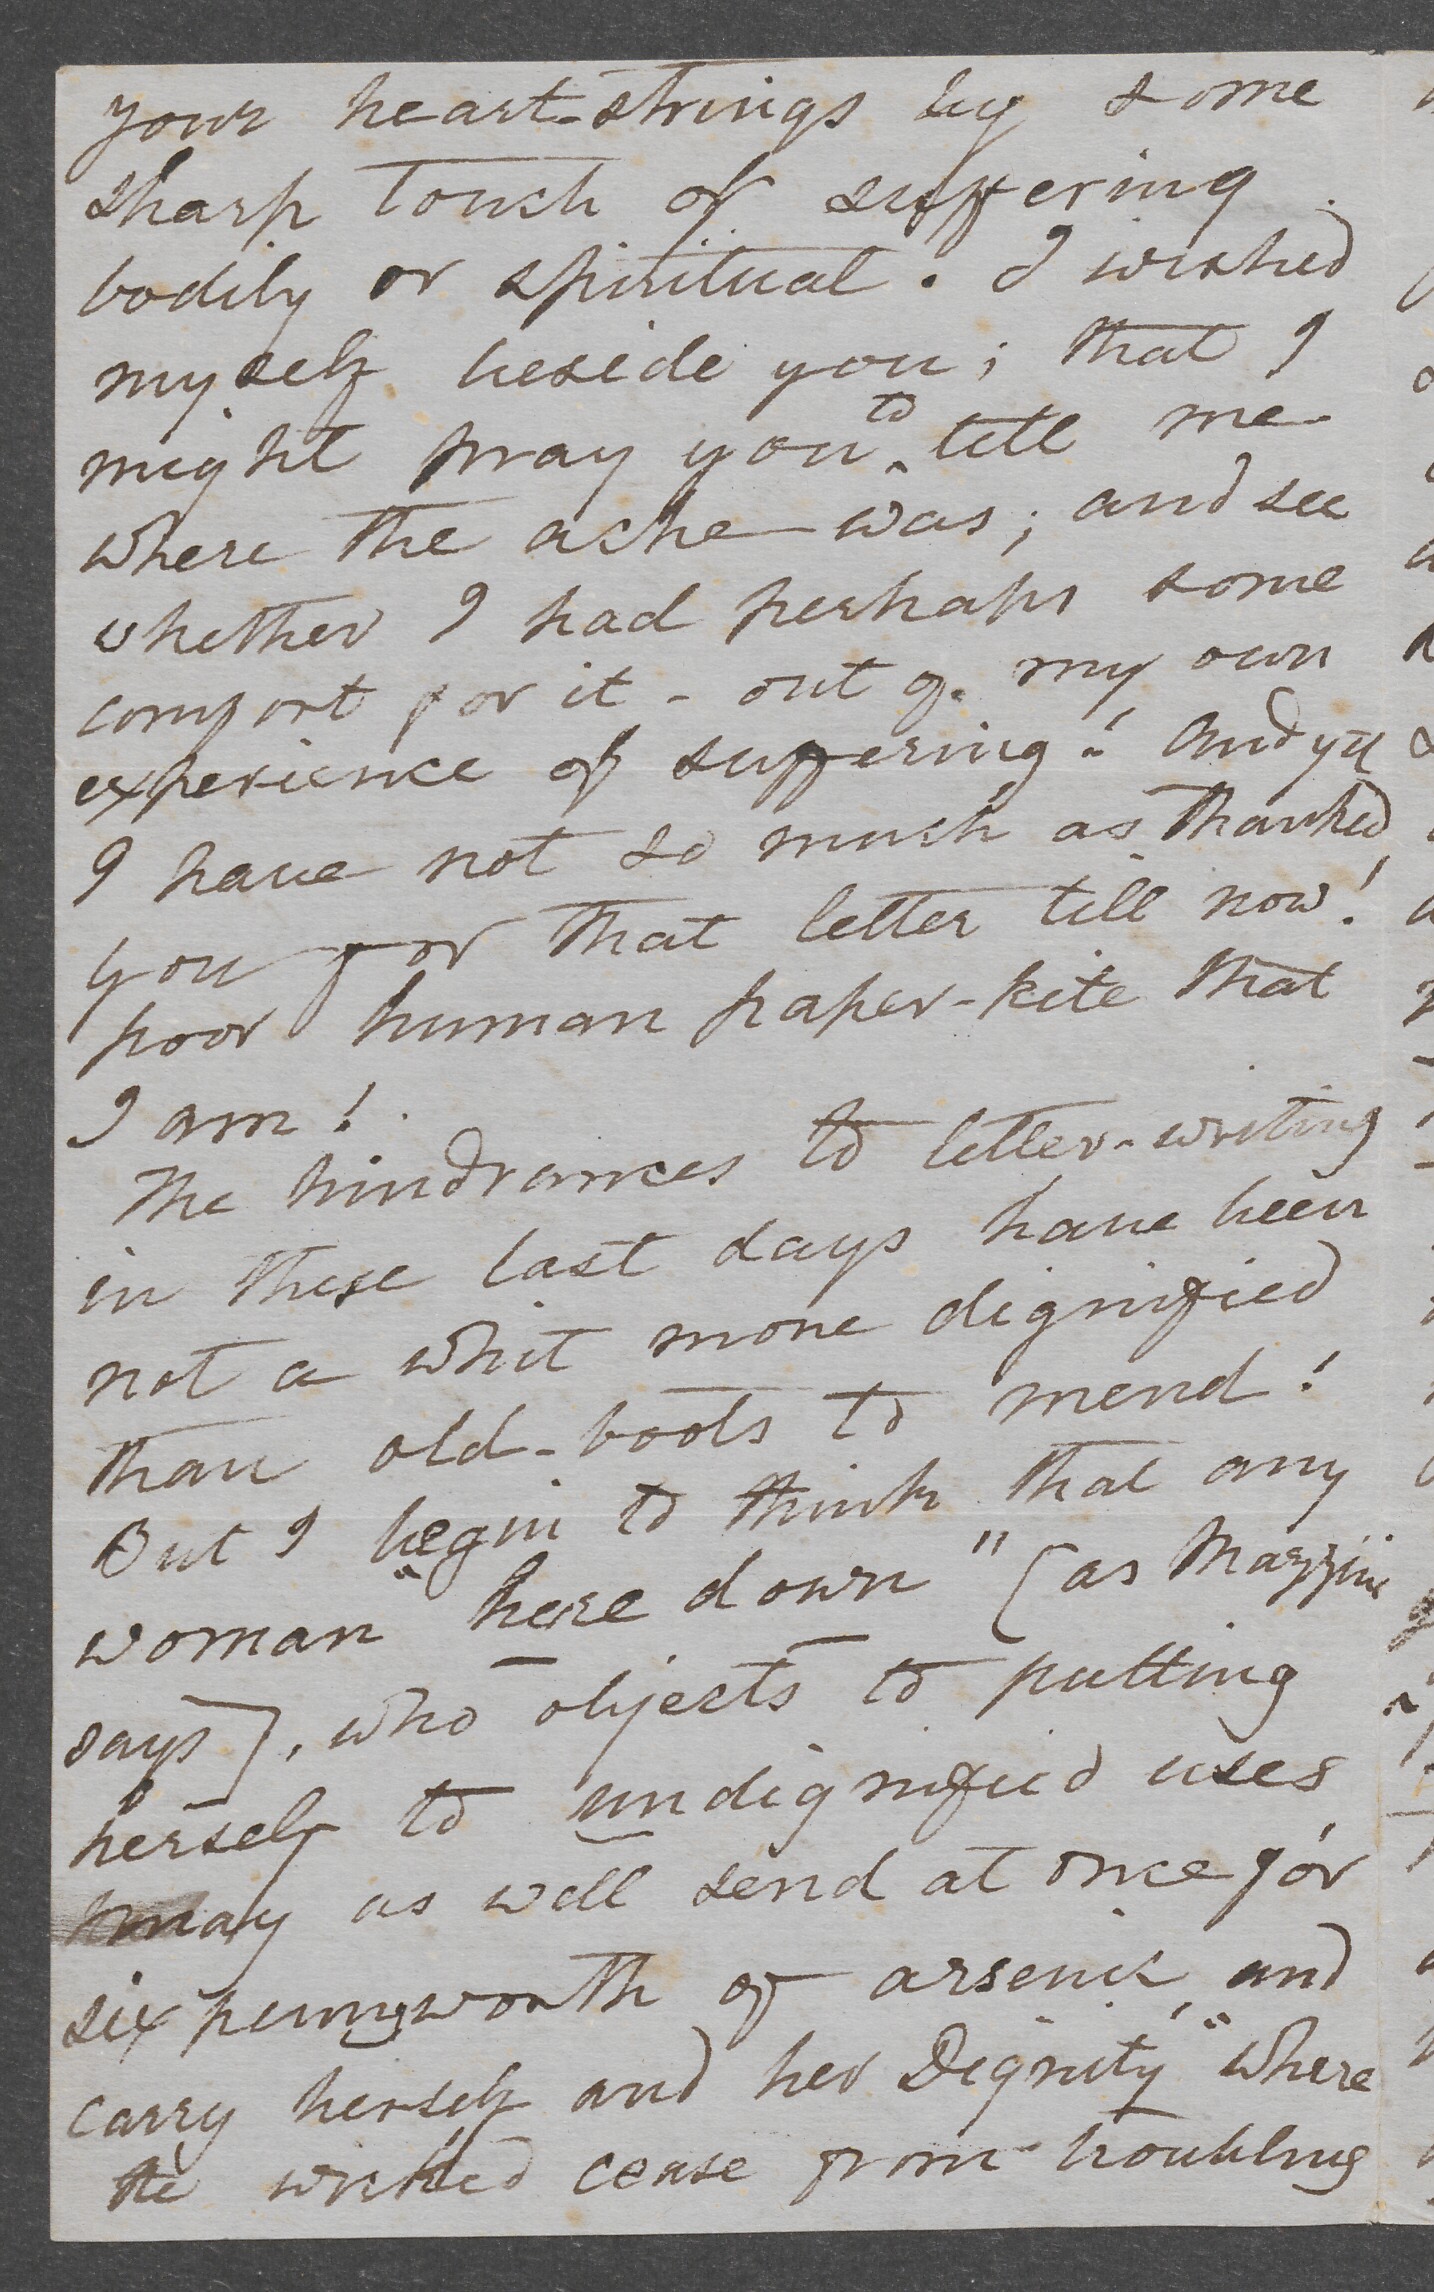 your heart-strings by some
sharp touch of suffering
bodily or spiritual. I wished
myself beside you; that I
might pray you ^to tell me
where the ache was; and see
whether I had perhaps some
comfort for it - out of my own
experience of suffering! And yet
I have not so much as thanked
you for that letter till now!
poor human paper-kite that
I am!
The hindrances to letter-writing
in these last days have been
not a whit more dignified
than old-boots to mend!
But I begin to think that any
woman "here down" (as Mazzini
says), who objects to putting
herself to undignified uses
may as well send at once for
sixpennysworth of arsenic and
carry herself and her Dignity "where
the wicked cease from troubling